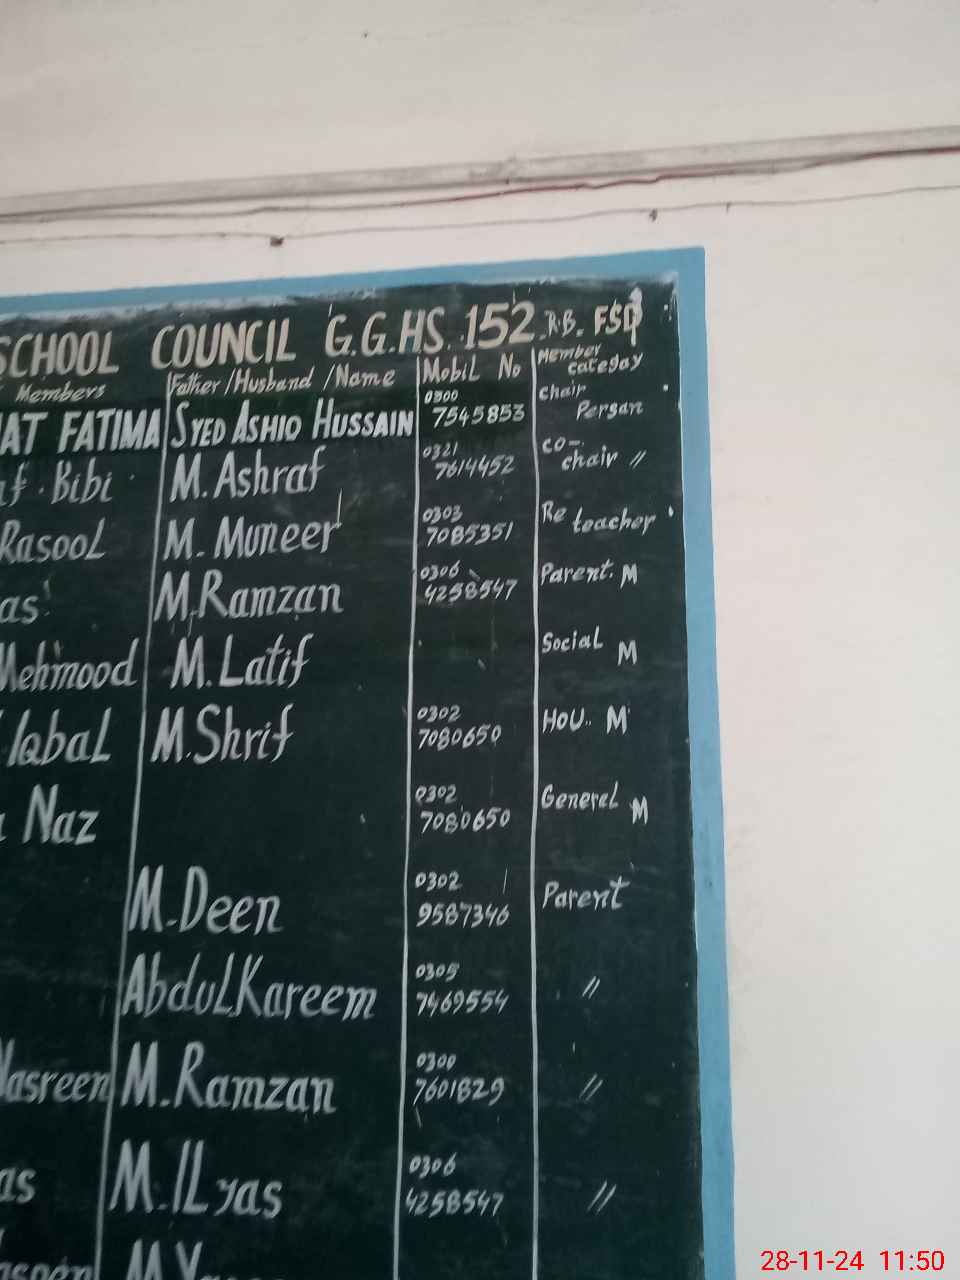 SCHOOL COUNCIL G.G.HS. 152 R.B. FSD
Members Father/Husband/Name Mobil No Member categay
FATIMA SYED ASHIO HUSSAIN 0300 7545853 chair Persan
Bibi M. Ashraf 0321 7614452 co-chair //
Rasool M. Muneer 0303 7085351 Re teacher
as M.Ramzan 0306 4258547 Parent. M
Mehmood M. Latif Social M
Iqbal M.Shrif 0302 7080650 HoU.. M
Naz 0302 7080650 General M
M.Deen 0302 9587346 Parent
Abdul Kareem 0305 7469554 //
Nasreen M.Ramzan 0300 7601829 //
as M.ILyas 0306 4258547 //
28-11-24 11:50